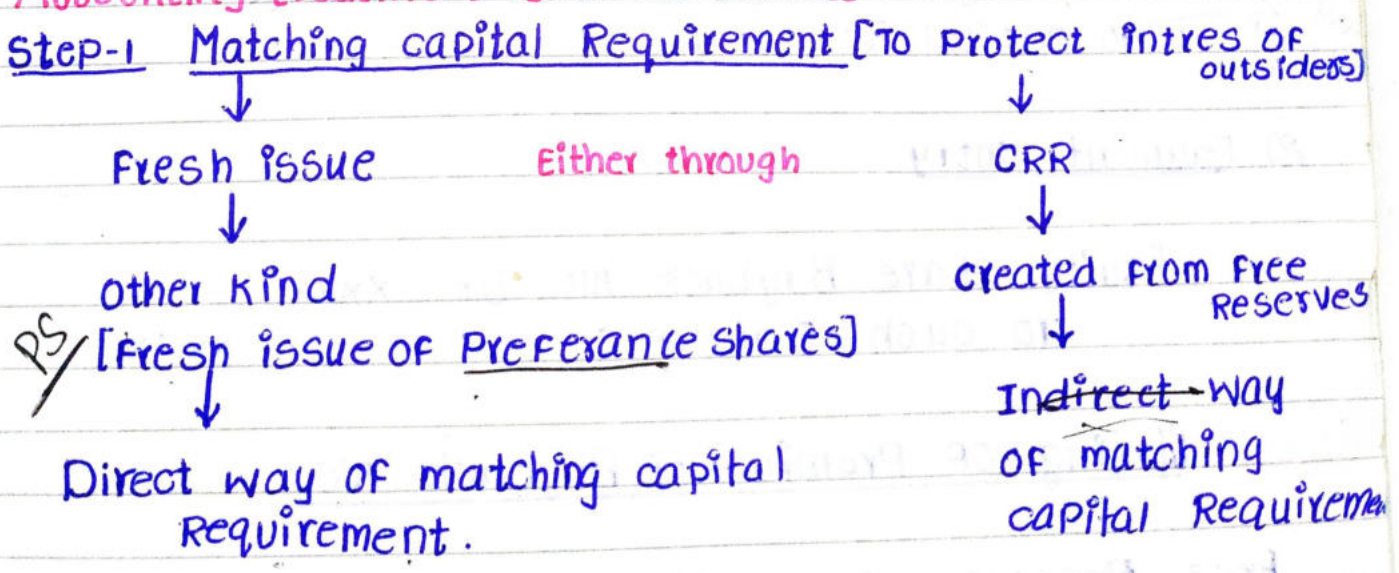 Step-1 Matching capital Requirement [To Protect intres of
outsiders]
Fresh issue Either through CRR
other kind
created from free
Reserves
PS
[Fresh issue of Preferance Shares]
Indirect way
of matching
capital
Direct way of matching capital
Requirement.